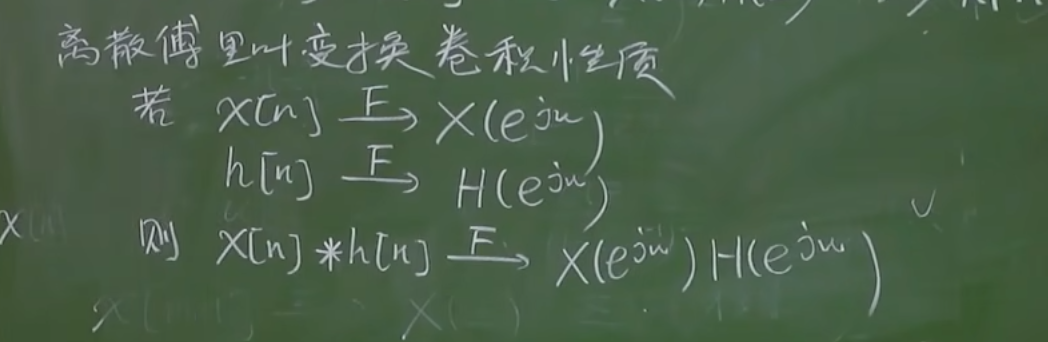 离散傅里叶变换卷积性质
若 x[n] F→ X(e^{jω})
h[n] F→ H(e^{jω})
则 x[n]*h[n] F→ X(e^{jω})H(e^{jω})